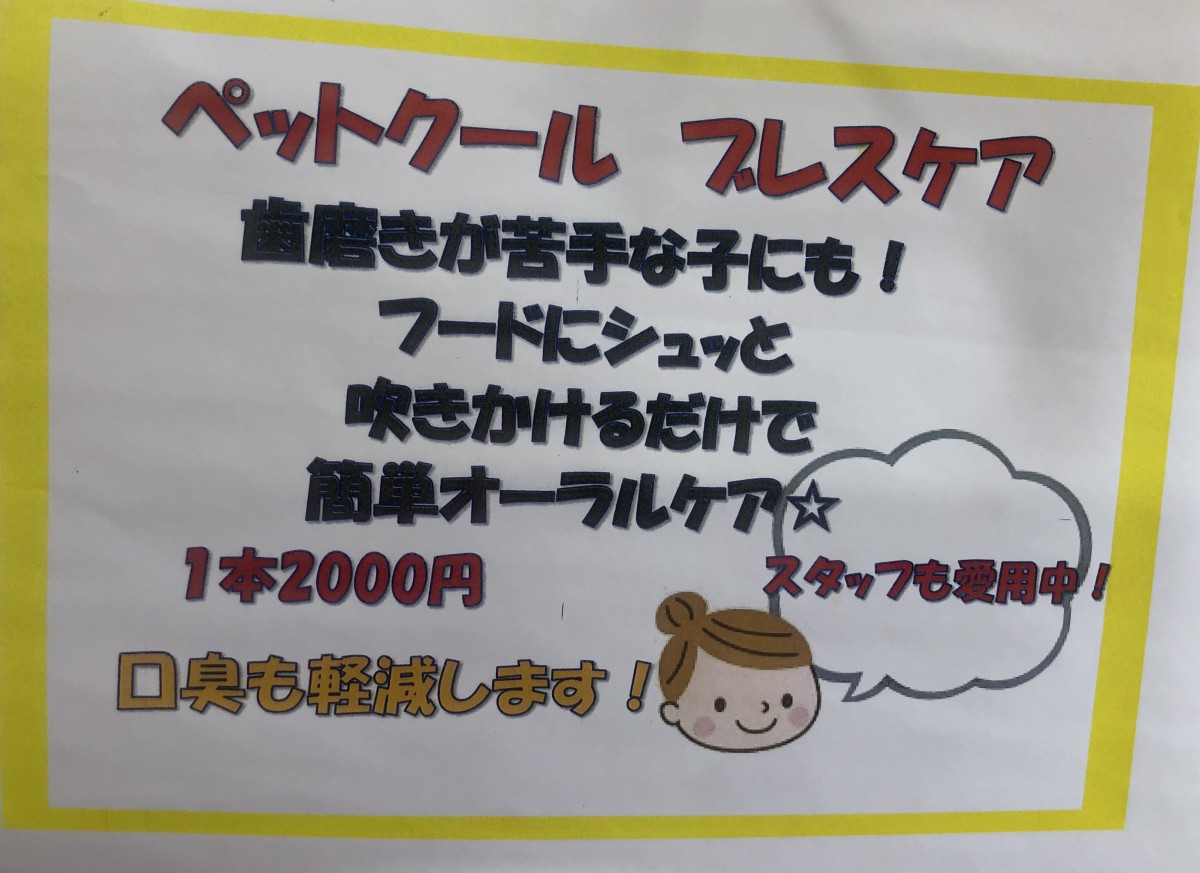 ペットクール ブレスケア
歯磨きが苦手な子にも！
フードにシュッと
吹きかけるだけで
簡単オーラルケア☆
1本2000円
スタッフも愛用中！
口臭も軽減します！